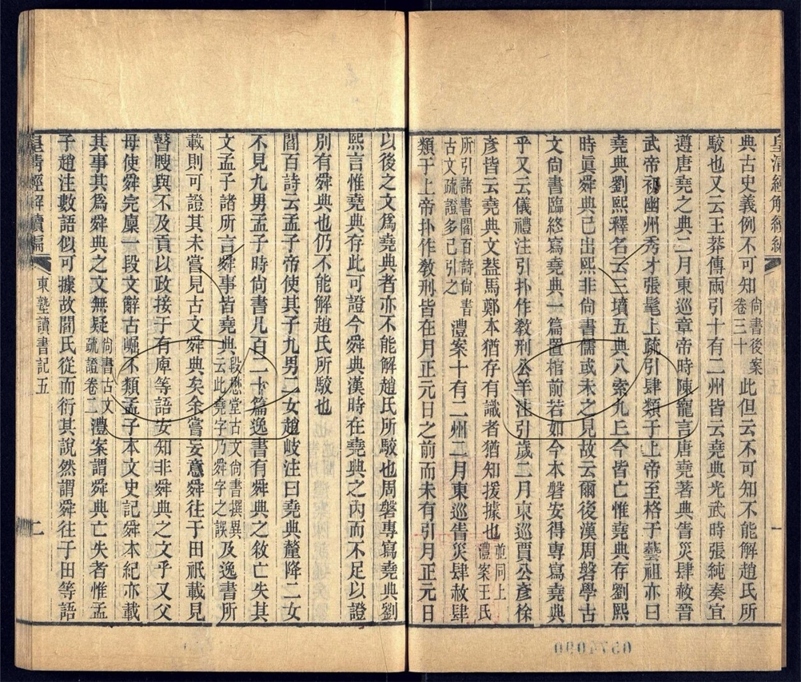 典古史義例不可知尚書後案卷三十此但云不可知不能解趙氏所
駮也又云王莽傳兩引十有二州皆云堯典光武時張純奏宜
遵唐堯之典二月東巡章帝時陳寵言唐堯著典眚災肆赦晉
武帝初幽州秀才張髦上疏引肆類于上帝至格于藝祖亦曰
堯典劉熙釋名云三墳五典八索九丘今皆亡惟堯典存劉熙
時眞舜典已出熙非尚書儒或未之見故云爾後漢周磐學古
文尚書臨終寫堯典一篇置棺前若如今本磐安得專寫堯典
乎又云儀禮注引扑作敎刑公羊注引歲二月東巡賈公彥徐
彥皆云堯典文葢馬鄭本猶存有識者猶知援據也並同上禮案王氏
所引諸書閻百詩尚書古文疏證多已引之澧案十有二州二月東巡眚災肆赦肆
類于上帝扑作敎刑皆在月正元日之前而未有引月正元日
以後之文爲堯典者亦不能解趙氏所駮也周磐專寫堯典劉
熙言惟堯典存此可證今舜典漢時在堯典之內而不足以證
別有舜典也仍不能解趙氏所駮也
閻百詩云孟子帝使其子九男二女趙岐注曰堯典釐降二女
不見九男孟子時尚書凡百二十篇逸書有舜典之敘亡失其
文孟子諸所言舜事皆堯典段懋堂古文尚書撰異云此堯字乃舜字之誤及逸書所
載則可證其未嘗見古文舜典矣余嘗妄意舜往于田祇載見
瞽瞍與不及貢以政接于有庳等語安知非舜典之文乎又父
母使舜完廩一段文辭古崛不類孟子本文史記舜本紀亦載
其事其爲舜典之文無疑尚書古文疏證卷二澧案謂舜典亡失者惟孟
子趙注數語似可據故閻氏從而衍其說然謂舜往于田等語
皇清經解續編
東塾讀書記五
二